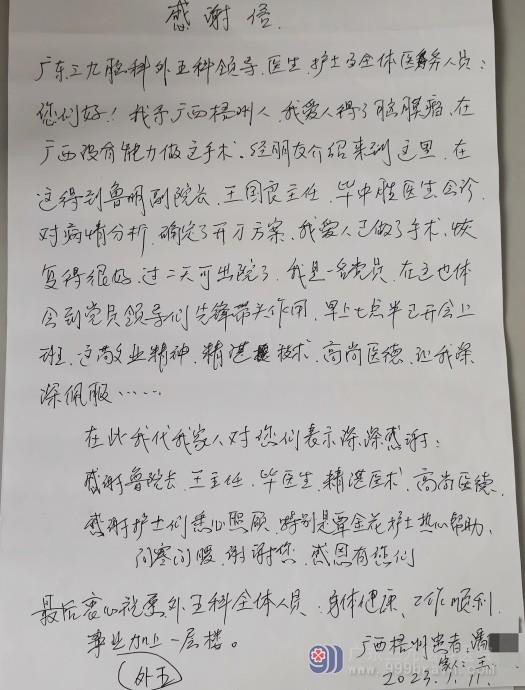 感谢信.
广东三九脑科外五科领导、医生、护士与全体医务人员：
您们好！我系广西梧州人，我爱人得了脑膜瘤，在
广西没有能力做这手术。经朋友介绍来到这里，在
这得到鲁明副院长、王国良主任、毕中胜医生会诊，
对病情分析，确定了开刀方案。我爱人已做了手术，恢
复得很好，过二天可出院了。我是一名党员，在这也体
会到党员领导们先锋带头作用，早上七点半已开会上
班，这敬业精神，精湛技术，高尚医德，让我深
深佩服……
在此我代我家人对您们表示深深感谢：
感谢鲁院长、王主任、毕医生，精湛医术，高尚医德。
感谢护士们悉心照顾，特别是覃金花护士热心帮助，
问寒问暖，谢谢您，感恩有您们
最后衷心祝愿外五科全体人员：身体健康、工作顺利，
事业加上一层楼。
广西梧州患者：潘
家人：王
外五
2023.1.11.
www.999brain.com